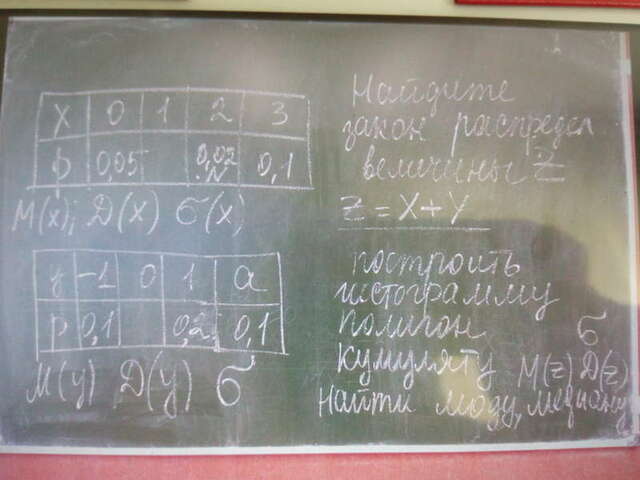 X 0 1 2 3
p 0,05 0,02 N 0,1
M(x); Д(x) σ(x)
y -1 0 1 a
p 0,1 0,2 0,1
M(y) Д(y) σ
Найдите
закон распредел
величины Z
Z = X + Y
построить
гистограмму
полигон
кумуляту M(z) Д(z) σ
Найти моду, медиану